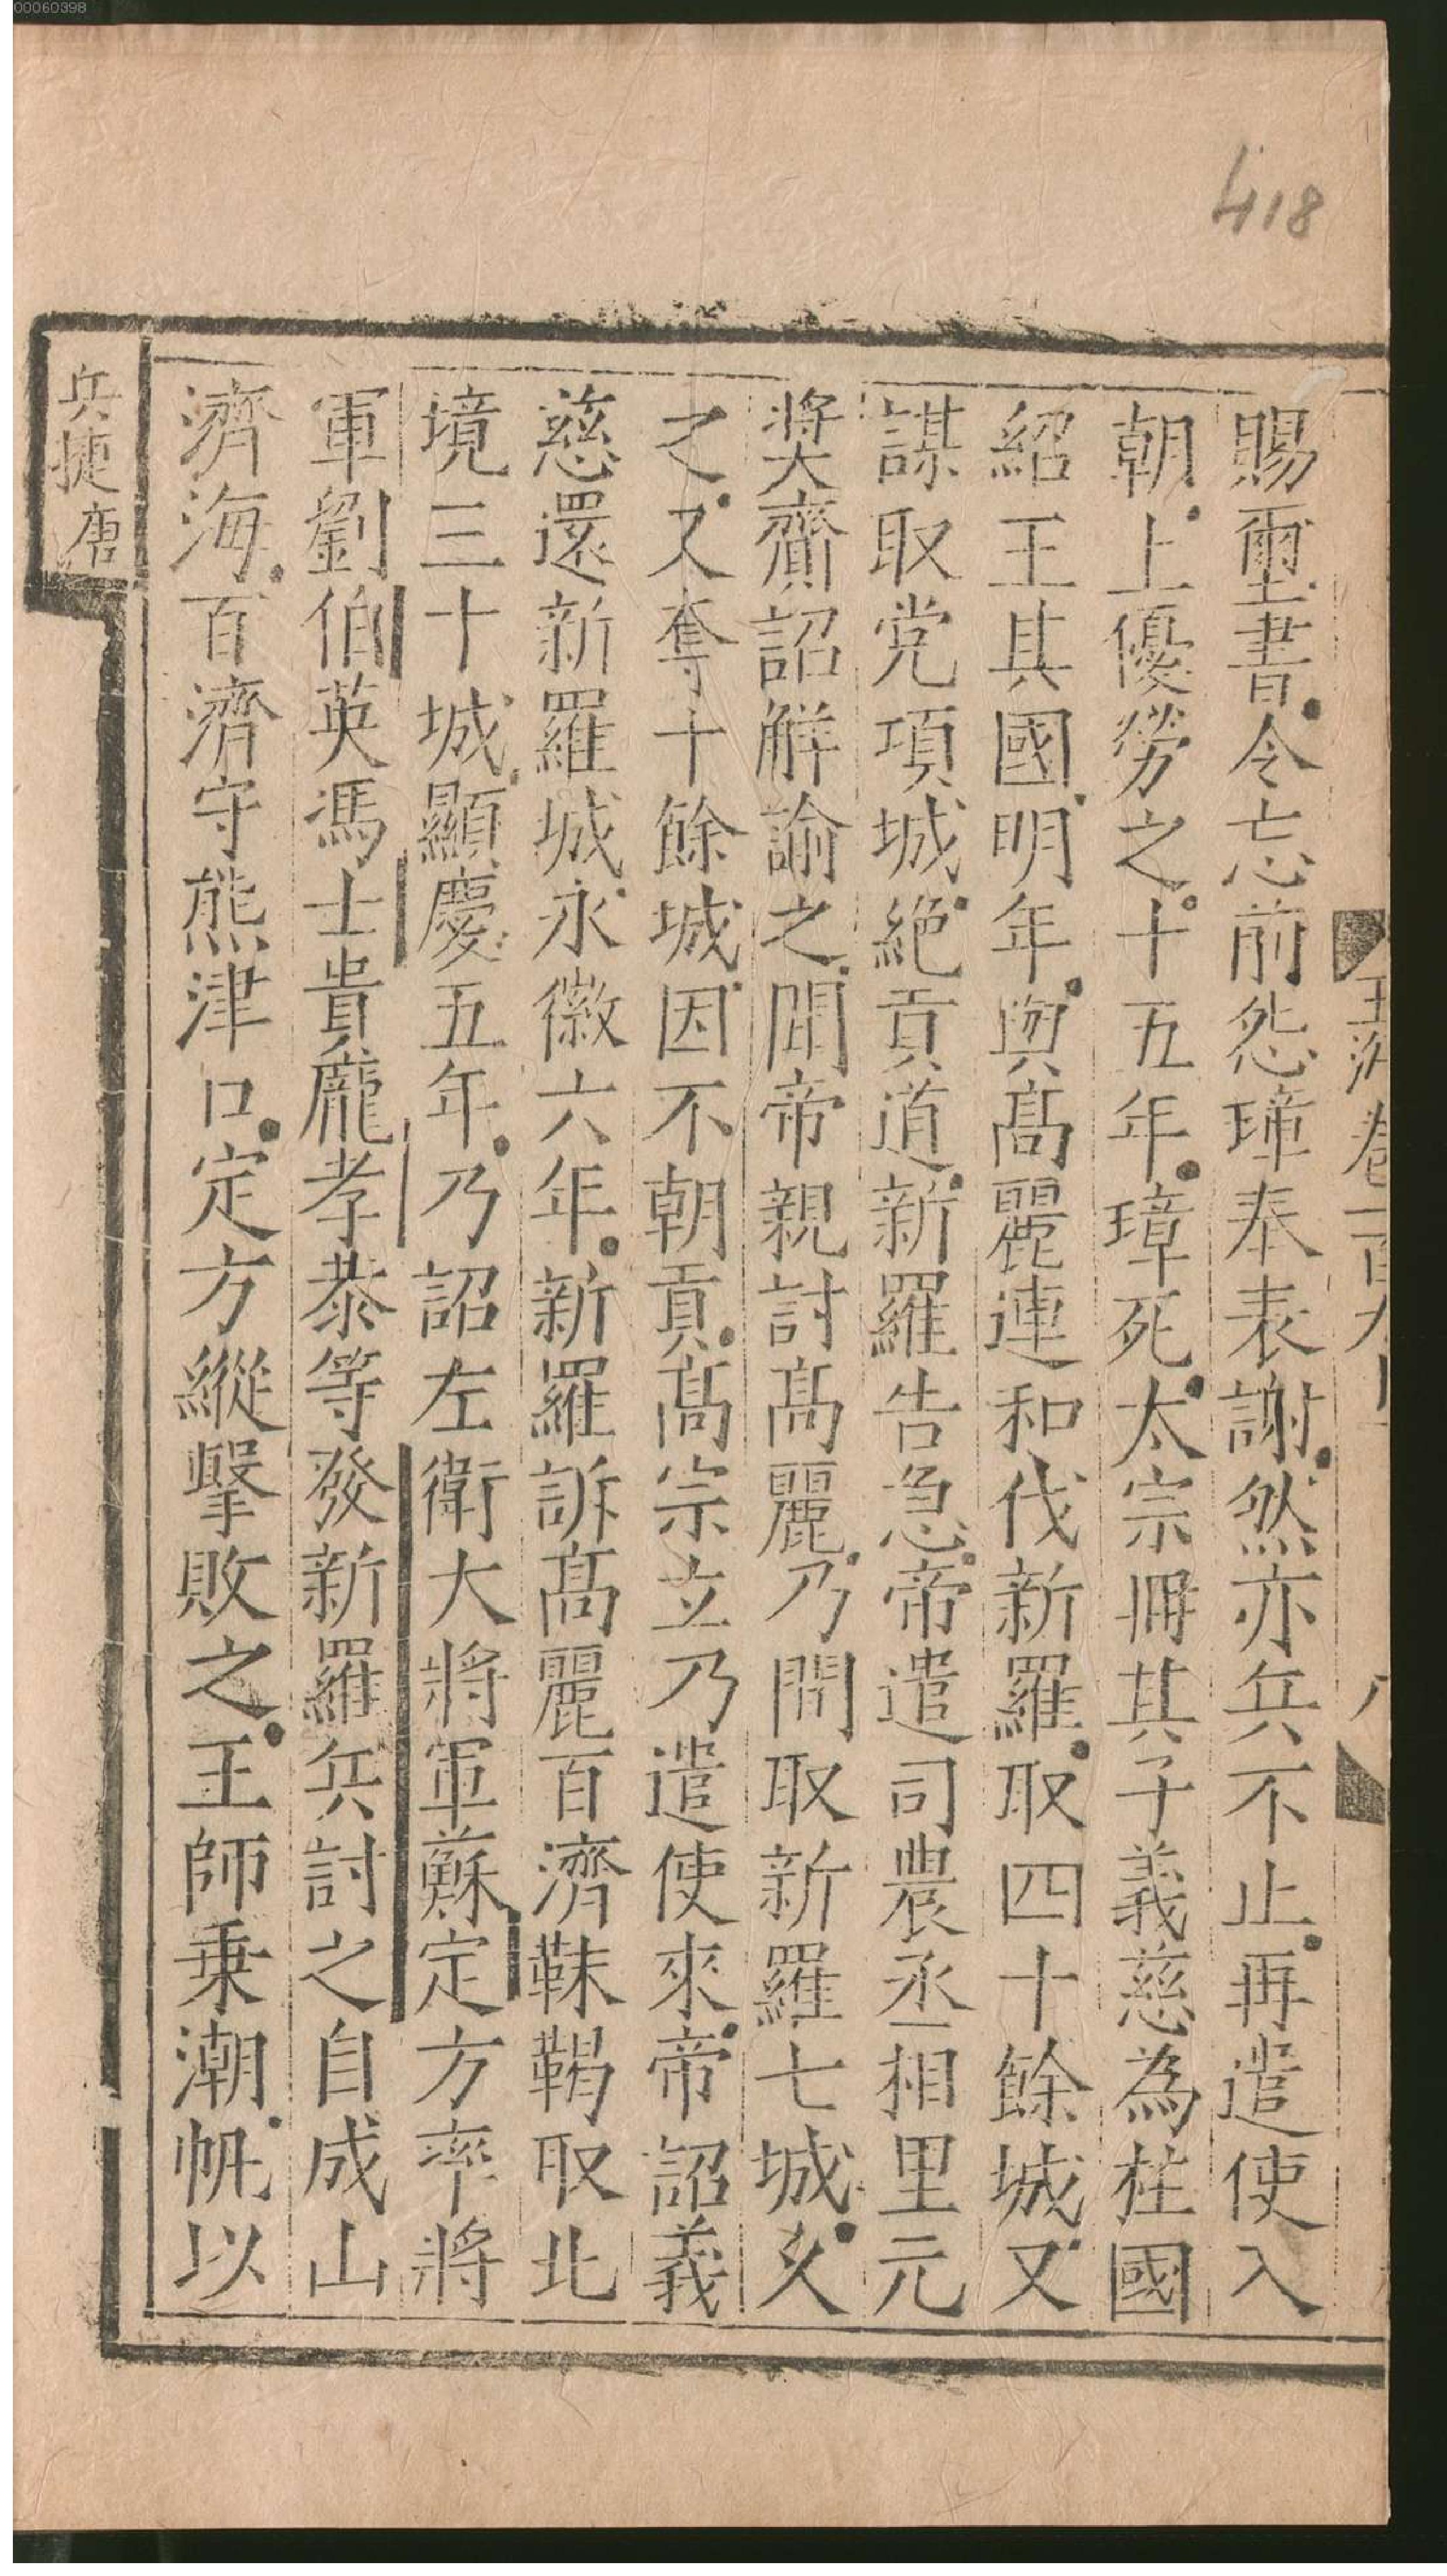 00060398
418
賜璽書令忘前怨璋奉表謝然亦兵不止再遣使入
朝上優勞之十五年璋死太宗冊其子義慈為柱國
紹王其國明年與高麗連和伐新羅取四十餘城又
謀取党項城絕貢道新羅告急帝遣司農丞相里元
奬齎詔觧諭之聞帝親討高麗乃間取新羅七城久
之又奪十餘城因不朝貢高宗立乃遣使來帝詔義
慈還新羅城永徽六年新羅訴高麗百濟靺鞨取北
境三十城顯慶五年乃詔左衛大將軍蘇定方率將
軍劉伯英馮士貴龐孝泰等發新羅兵討之自成山
濟海百濟守熊津口定方縱擊敗之王師乗潮帆以
兵捷唐